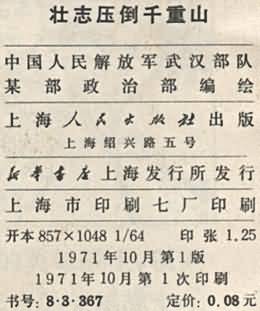 壮志压倒千重山
中国人民解放军武汉部队
某部政治部编绘
上海人民出版社出版
上海绍兴路五号
新华书店上海发行所发行
上海市印刷七厂印刷
开本857×1048 1/64 印张1.25
1971年10月第1版
1971年10月第1次印刷
书号:8·3·367 定价:0.08元